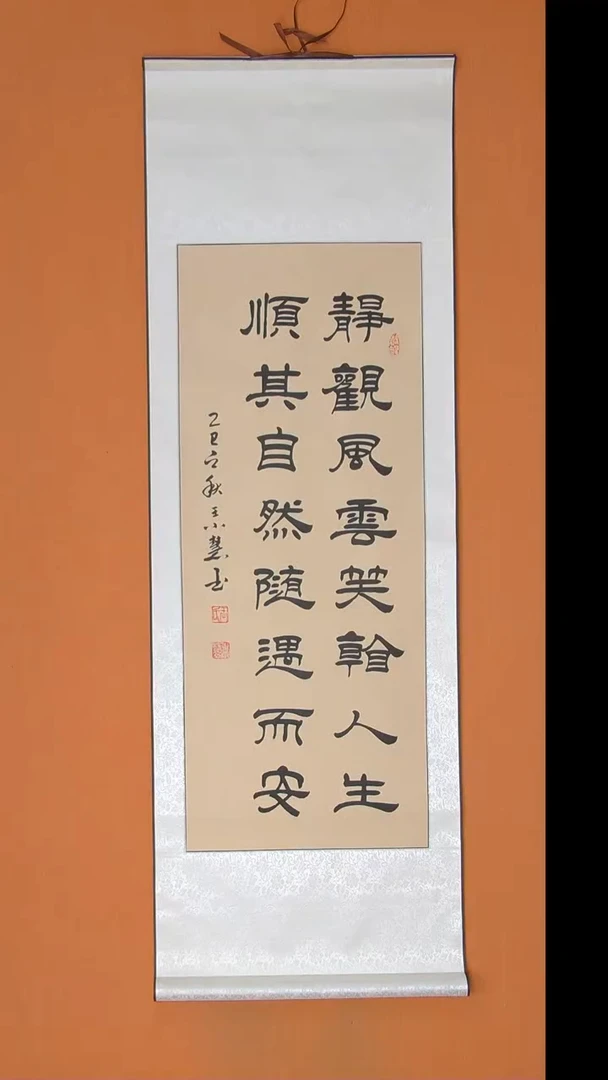 靜觀風雲笑看人生
順其自然隨遇而安
乙巳立秋王小慧